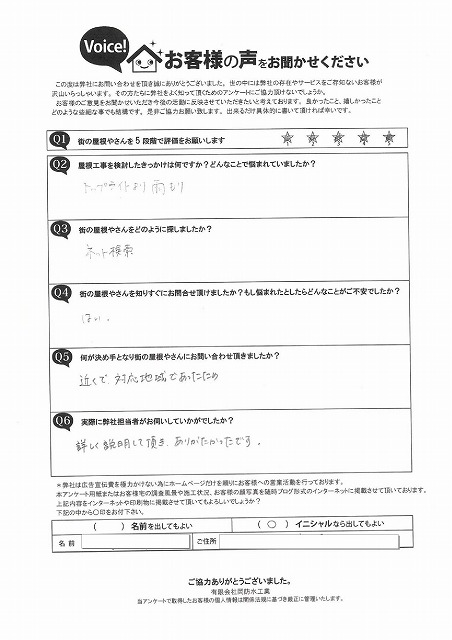 Voice! お客様の声をお聞かせください
この度は弊社にお問い合わせを頂き誠にありがとうございます。世の中には弊社の存在やサービスをご存知ないお客様が
沢山いらっしゃいます。その方たちに弊社をよく知って頂くためのアンケートにご協力頂けないでしょうか。
お客様のご意見をお聞かせいただき今後の活動に反映させていただきたいと考えております。良かったこと、嬉しかったこと
どのような些細な事でも結構です。是非ご協力お願い致します。出来るだけ具体的に書いて頂ければ幸いです。
Q1 街の屋根やさんを5段階で評価をお願いします ★ ★ ★ ★ ★
Q2 屋根工事を検討したきっかけは何ですか？どんなことで悩まれていましたか？
トップライトより雨もり
Q3 街の屋根やさんをどのように探しましたか？
ネット検索
Q4 街の屋根やさんを知りすぐにお問合せ頂けましたか？もし悩まれたとしたらどんなことがご不安でしたか？
はい。
Q5 何が決め手となり街の屋根やさんにお問い合わせ頂きましたか？
近くで、対応地域であったため
Q6 実際に弊社担当者がお伺いしていかがでしたか？
詳しく説明して頂き、ありがたかったです。
＊弊社は広告宣伝費を極力かけない為にホームページだけを頼りにお客様への営業活動を行っております。
本アンケート用紙またはお客様宅の調査風景や施工状況、お客様の顔写真を随時ブログ形式のインターネットに掲載させて頂いております。
上記内容をインターネットや印刷物に掲載させて頂いてもよろしいでしょうか？
下記の中から〇印をお付下さい。
（　　）名前を出してもよい （ 〇 ）イニシャルなら出してもよい
名前 ご住所
ご協力ありがとうございました。
有限会社岡防水工業
当アンケートで取得したお客様の個人情報は関係法規に基づき厳正に管理いたします。